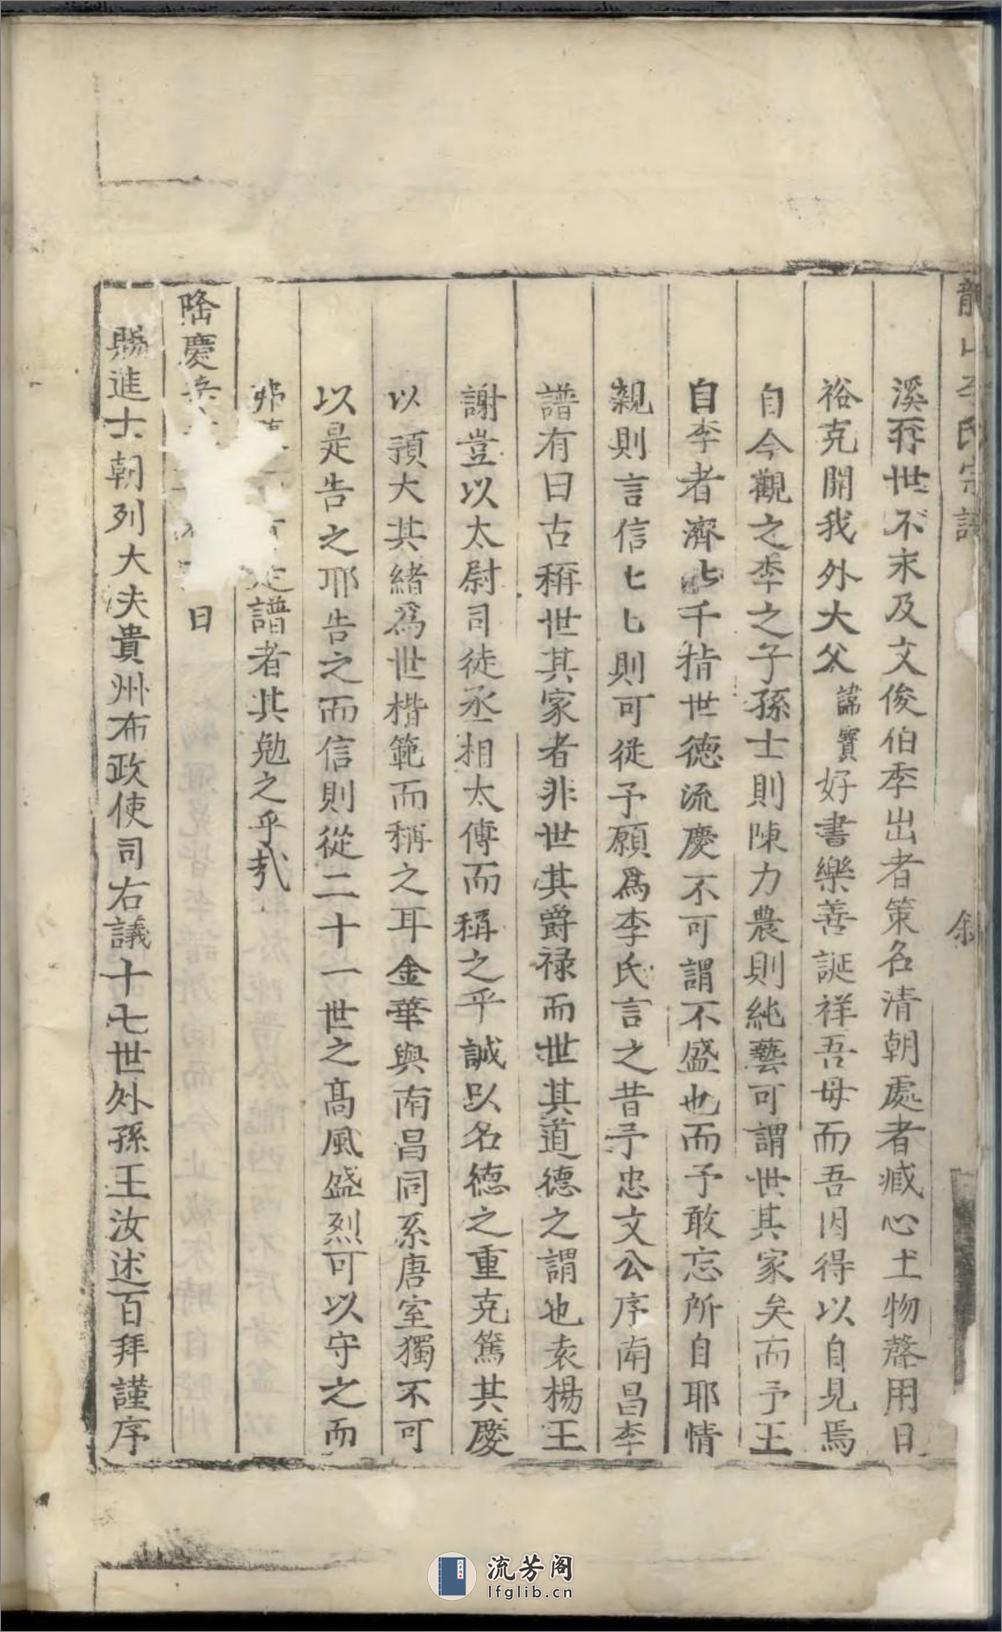 龍山李氏宗譜
敘
溪存世不末及文俊伯季出者策名清朝處者臧心土物罄用日
裕克開我外大父諱賓好書樂善誕祥吾母而吾因得以自見焉
自今觀之李之子孫士則陳力農則純藝可謂世其家矣而予王
自李者濟七千指世德流慶不可謂不盛也而予敢忘所自耶情
親則言信七七則可從予願為李氏言之昔予忠文公序南昌李
譜有曰古稱世其家者非世其爵祿而世其道德之謂也袁楊王
謝豈以太尉司徒丞相太傅而稱之乎誠以名德之重克篤其慶
以預大其緒為世楷範而稱之耳金華與南昌同系唐室獨不可
以是告之耶告之而信則從二十一世之高風盛烈可以守之而
弗 是譜者其勉之乎哉
隆慶 日
賜進士朝列大夫貴州布政使司右議十七世外孫王汝述百拜謹序
流芳阁
lfglib.cn